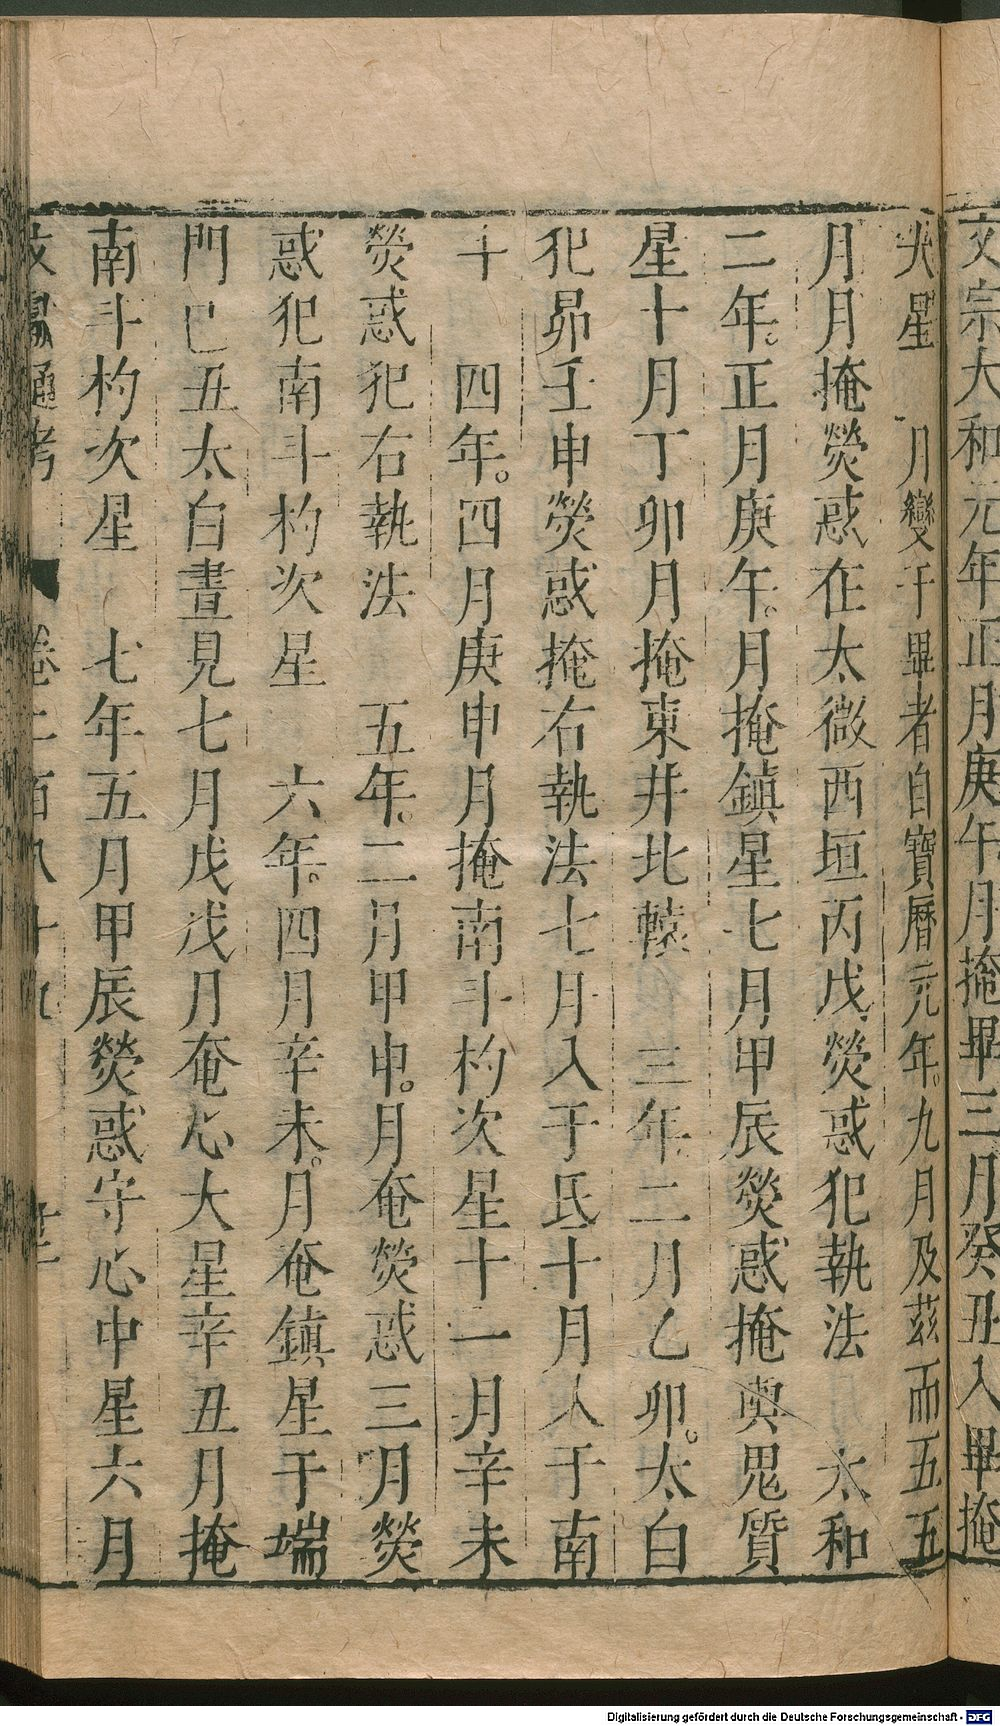 文宗大和元年正月庚午月掩畢三月癸丑入畢掩
大星 月變于畢者自寶曆元年九月及茲而五五
月月掩熒惑在太微西垣丙戌熒惑犯執法 大和
二年正月庚午月掩鎮星七月甲辰熒惑掩輿鬼質
星十月丁卯月掩東井北轅 三年二月乙卯太白
犯昴壬申熒惑掩右執法七月入于氐十月入于南
斗 四年四月庚申月掩南斗杓次星十一月辛未
熒惑犯右執法 五年二月甲申月奄熒惑三月熒
惑犯南斗杓次星 六年四月辛未月奄鎮星于端
門己丑太白晝見七月戊戌月奄心大星辛丑月掩
南斗杓次星 七年五月甲辰熒惑守心中星六月
文獻通考 卷二百八十九 廿二
Digitalisierung gefördert durch die Deutsche Forschungsgemeinschaft - DFG